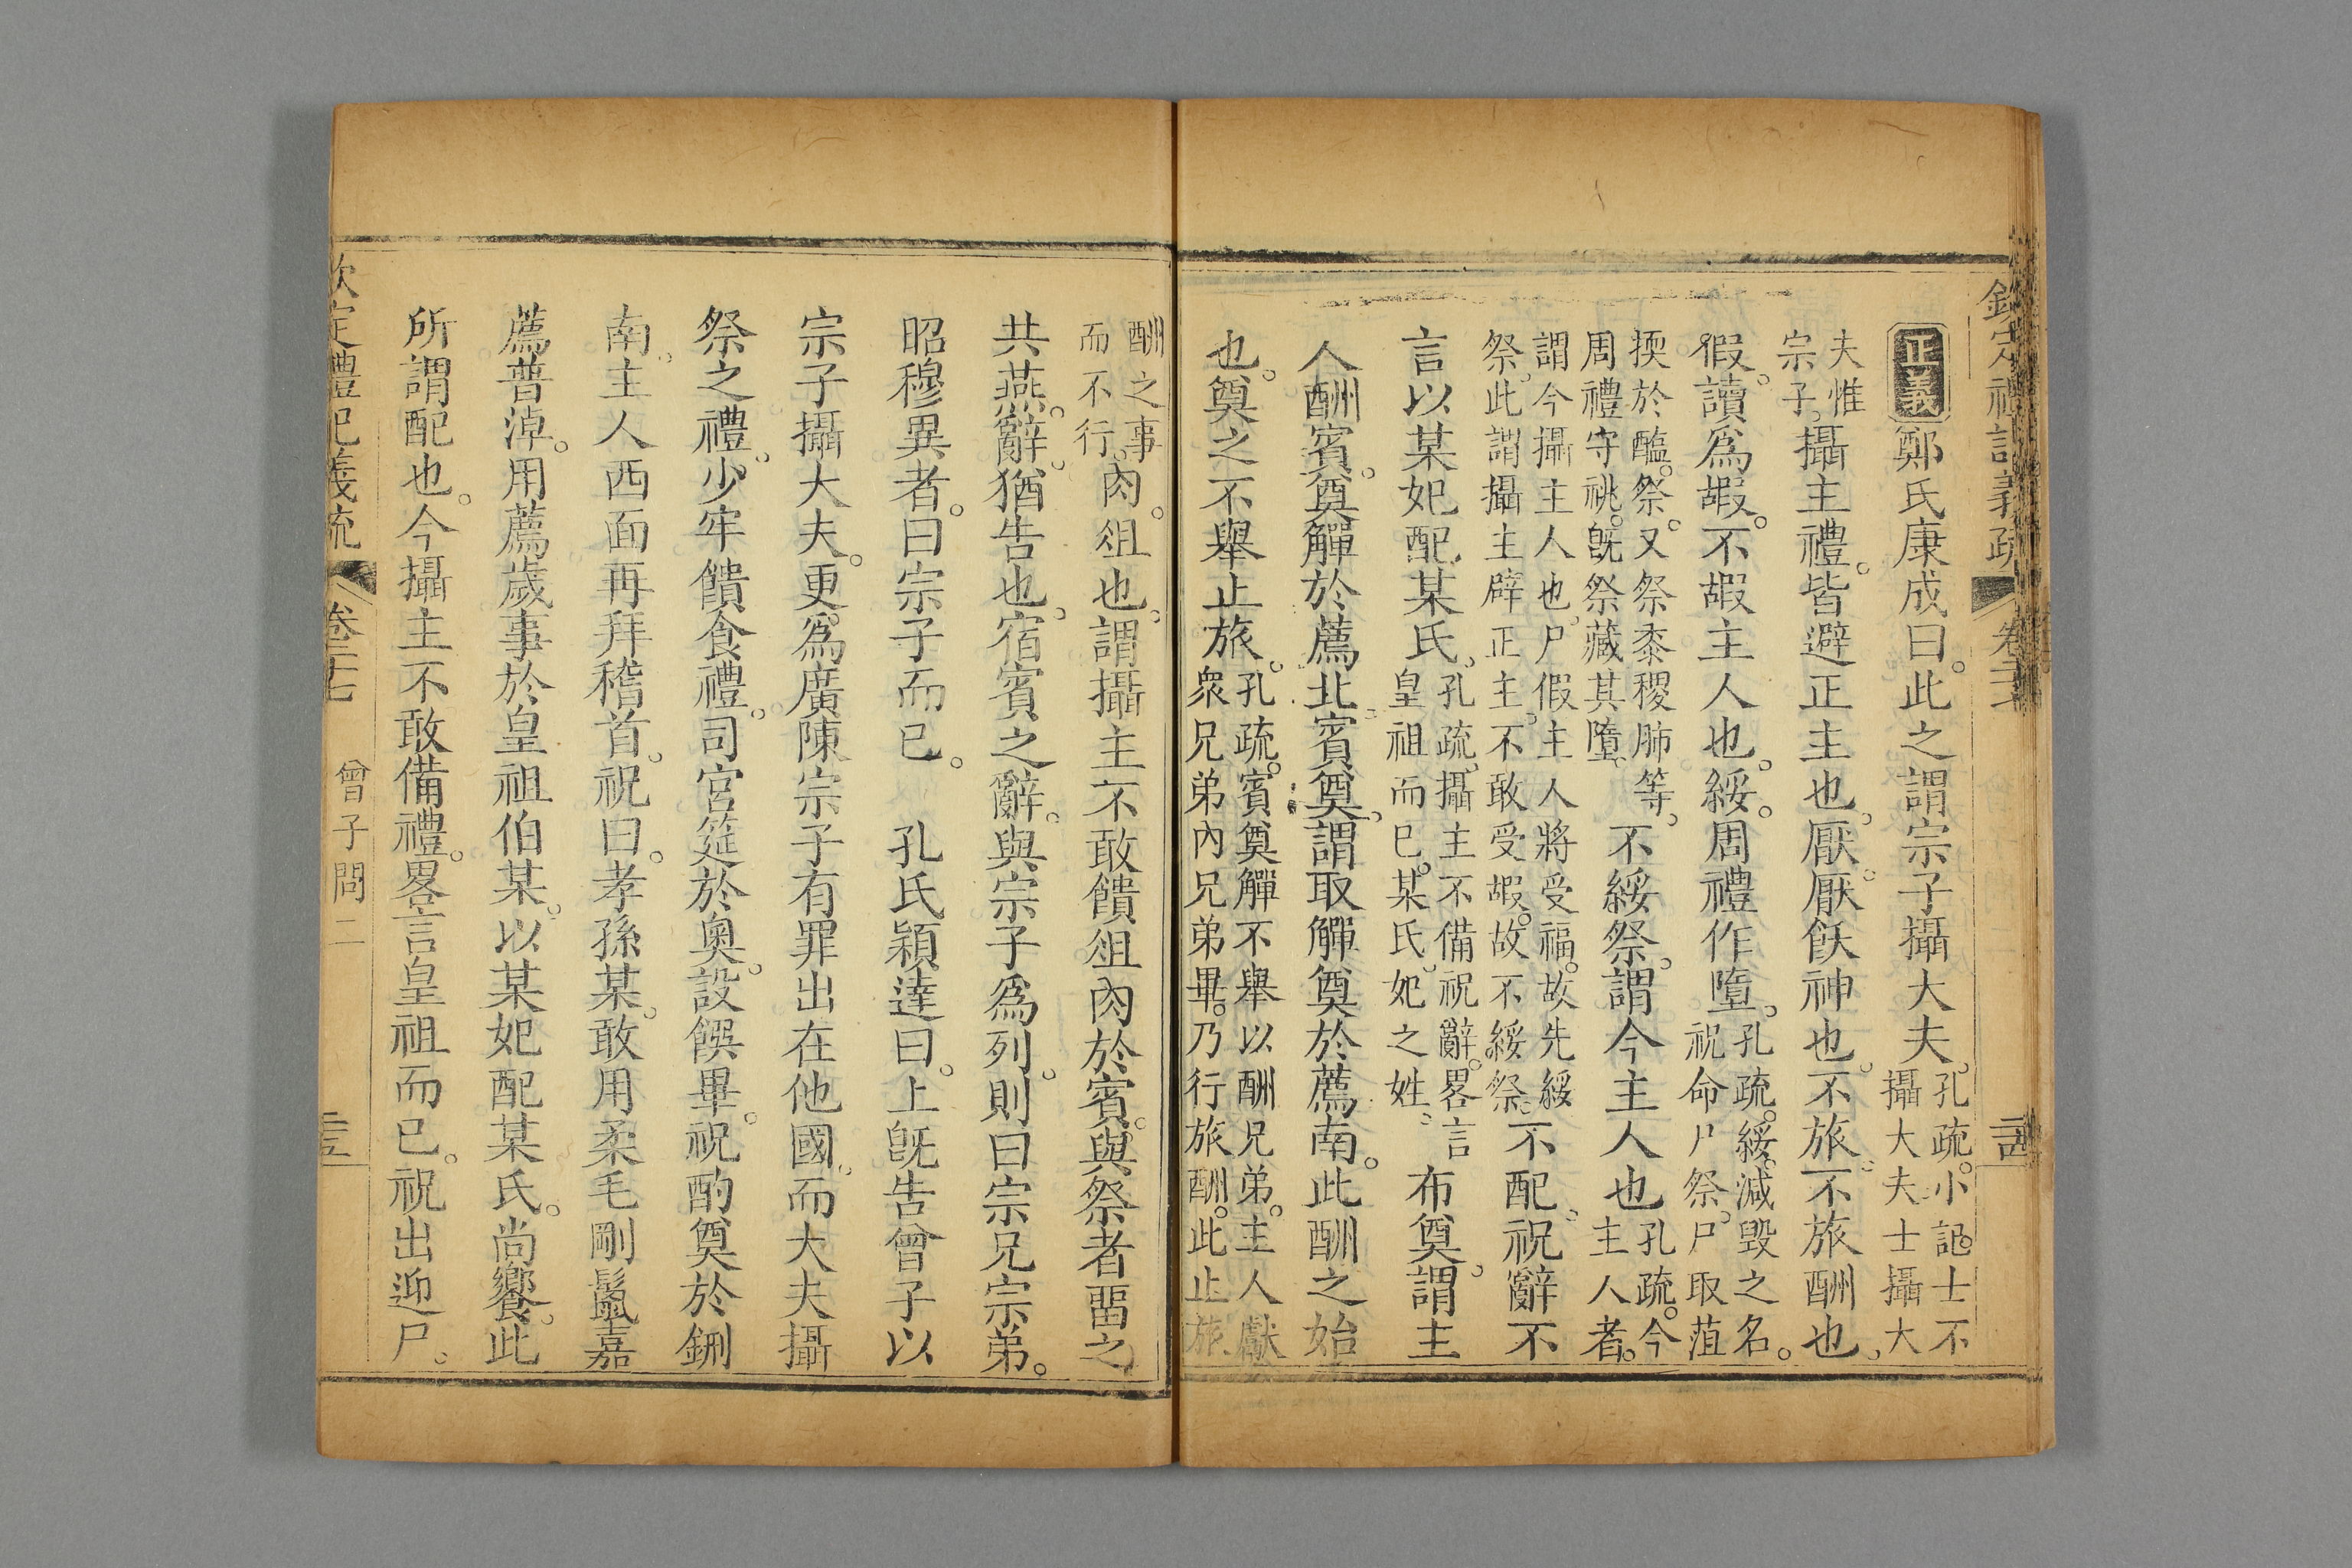 欽定禮記義疏 卷二十七 二十四
正義 鄭氏康成曰。此之謂宗子攝大夫。孔疏。小記。士不攝大夫士攝大
夫惟宗子。攝主禮。皆避正主也。厭。厭飫神也。不旅。不旅酬也。
假。讀爲嘏。不嘏主人也。綏。周禮作墮。孔疏。綏。減毀之名。祝命尸祭。尸取菹
㨎於醢。祭。又祭黍稷肺等。周禮守祧。旣祭藏其墮。不綏祭。謂今主人也。孔疏。今主人者。
謂今攝主人也。尸假主人將受福。故先綏祭。此謂攝主辟正主。不敢受嘏。故不綏祭。不配。祝辭不
言以某妃配某氏。孔疏。攝主不備祝辭。畧言皇祖而已。某氏。妃之姓。布奠。謂主
人酬賓。奠觶於薦北。賓奠。謂取觶奠於薦南。此酬之始
也。奠之不舉。止旅。孔疏。賓奠觶不舉以酬兄弟。主人獻衆兄弟內兄弟畢。乃行旅酬。此止旅
酬之事而不行。肉。俎也。謂攝主不敢饋俎肉於賓。與祭者畱之
共燕。辭。猶告也。宿賓之辭。與宗子爲列。則曰宗兄宗弟。
昭穆異者。曰宗子而已。 孔氏穎達曰。上旣告曾子以
宗子攝大夫。更爲廣陳宗子有罪出在他國。而大夫攝
祭之禮。少牢饋食禮。司宮筵於奧。設饌畢。祝酌奠於鉶
南。主人西面再拜稽首。祝曰。孝孫某。敢用柔毛剛鬛嘉
薦普淖。用薦歲事於皇祖伯某。以某妃配某氏。尚饗。此
所謂配也。今攝主不敢備禮。畧言皇祖而已。祝出迎尸。
欽定禮記義疏 卷二十七 曾子問二 二十五